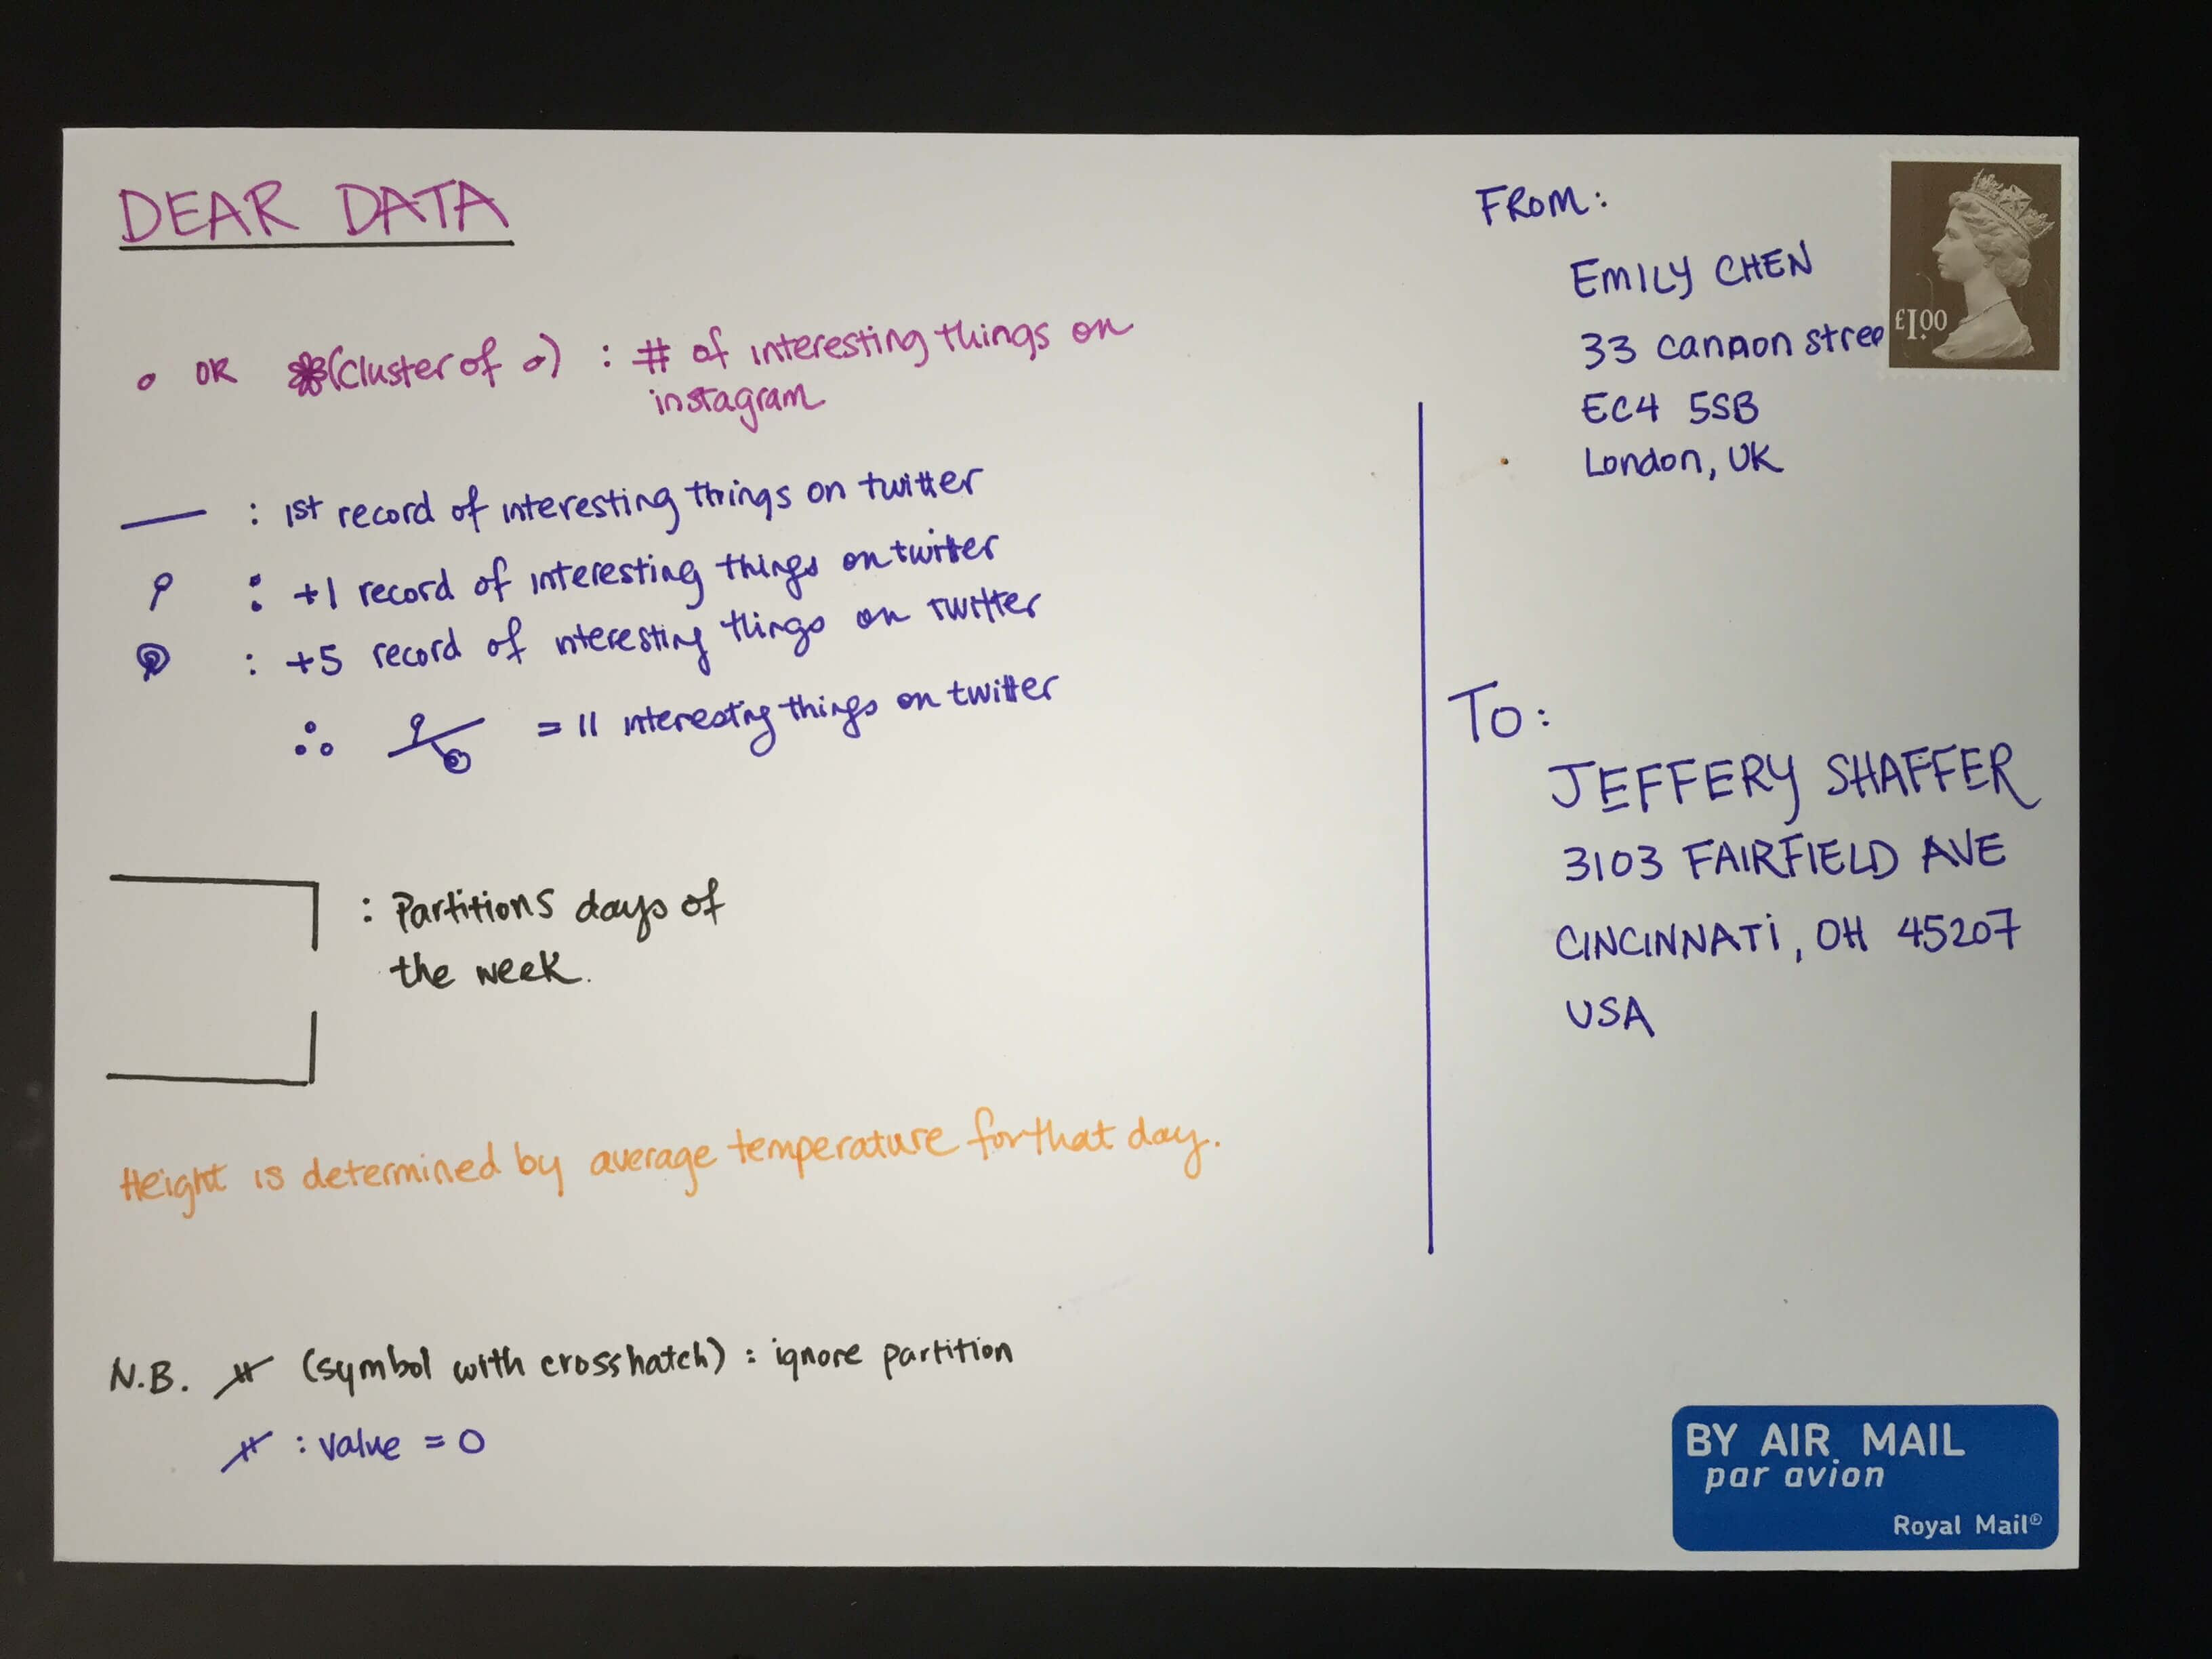 DEAR DATA
o OR (cluster of o) : # of interesting things on
instagram
: 1st record of interesting things on twitter
: +1 record of interesting things on twitter
: +5 record of interesting things on twitter
∴ = 11 interesting things on twitter
: Partitions days of
the week.
Height is determined by average temperature for that day.
N.B. (symbol with crosshatch) : ignore partition
: value = 0
FROM:
EMILY CHEN
33 cannon stree
EC4 5SB
London, UK
£1.00
To:
JEFFERY SHAFFER
3103 FAIRFIELD AVE
CINCINNATI, OH 45207
USA
BY AIR MAIL
par avion
Royal Mail®